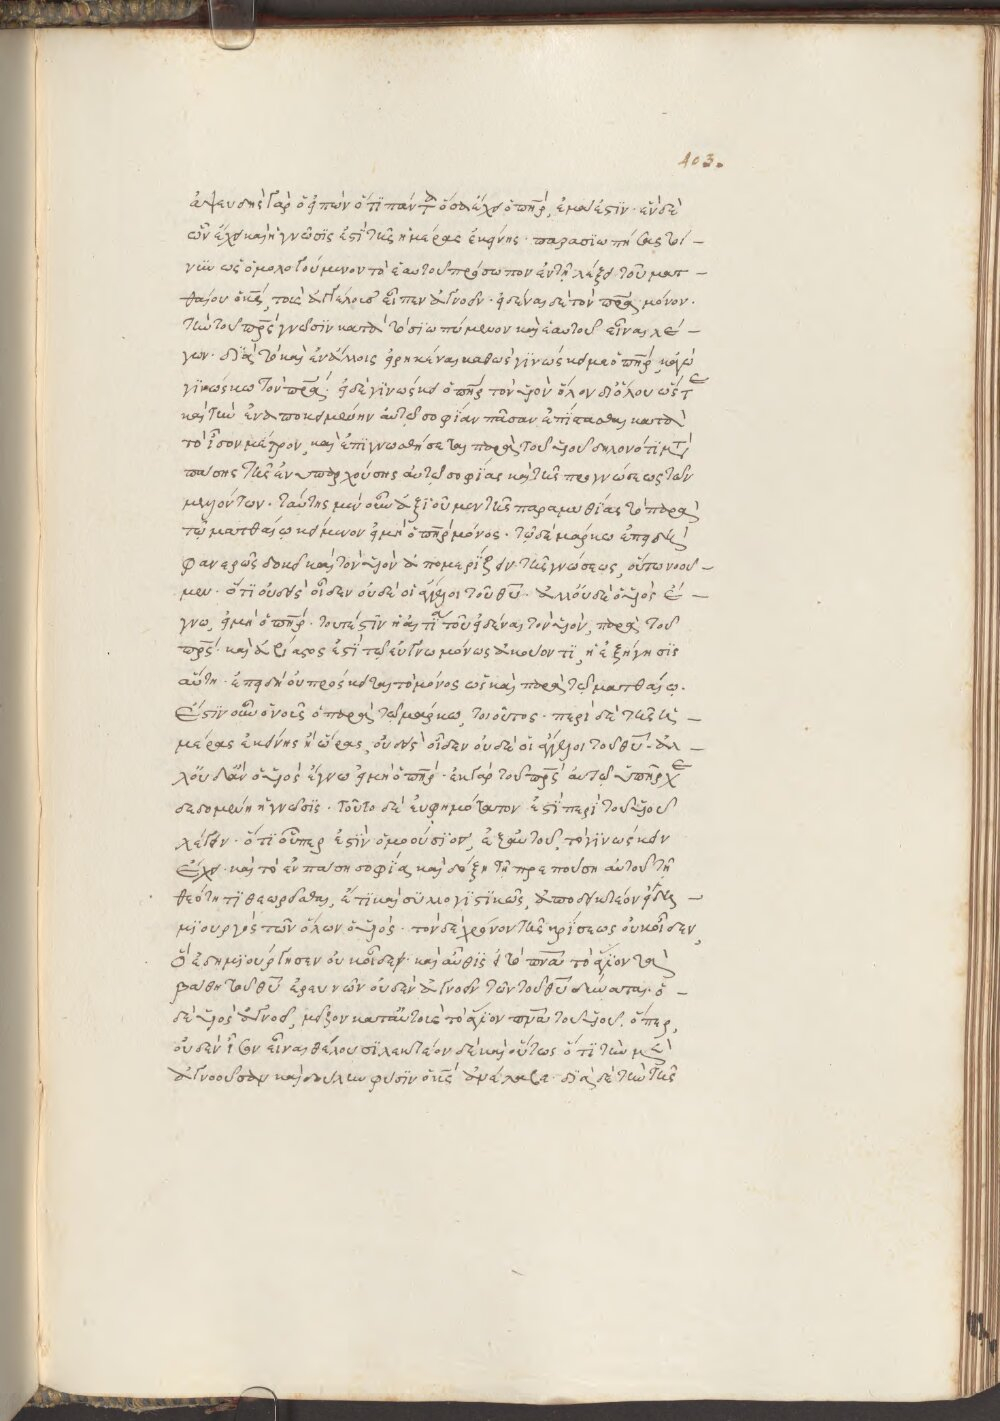 403.
ἀψευδὴς γὰρ ὁ εἰπὼν ὅτι πάντα ὅσα ἔχει ὁ πηρ, ἐμά ἐστιν· ἓν δὲ
ὧν ἔχει καὶ ἡ γνῶσις ἐστὶ τῆς ἡμέρας ἐκείνης· παρασιωπήσας
ὡς ὁμολογούμενον τὸ ἑαυτοῦ πρόσωπον ἐν τῇ λέξει τοῦ ματ –
θαίου ὁ κς, τοὺς ἀγγέλους εἶπεν ἀγνοεῖν· εἰδέναι δὲ τὸν πρα μόνον·
τὴν τοῦ πρς γνῶσιν κατὰ τὸ σιωπώμενον καὶ ἑαυτοῦ εἶναι λέ –
γων· διὰ τὸ καὶ ἐν ἄλλοις εἰρηκέναι καθὼς γινώσκει με ὁ πηρ, κἀγὼ
γινώσκω τὸν πρα· εἰ δὲ γινώσκει ὁ πηρ τὸν υἱὸν ὅλον δι' ὅλου ὥστε
καὶ τὴν ἐναποκειμένην αὐτῷ σοφίαν πᾶσαν ἐπίστασθαι κατὰ
τὸ ἴσον μέτρον, καὶ ἐπιγνωσθήσεται παρὰ τοῦ υἱοῦ δηλονότι μετὰ
πάσης τῆς ἐνυπαρχούσης αὐτῷ σοφίας καὶ τῆς προγνώσεως τῶν
μελλόντων· ταύτης μὲν οὖν ἀξιοῦμεν τῆς παραμυθίας τὸ παρὰ
τῷ ματθαίῳ κείμενον εἰ μὴ ὁ πηρ μόνος· τὸ δὲ μάρκω ἐπειδὴ
φανερῶς δοκεῖ καὶ τὸν υἱὸν ἀπομερίζειν τῆς γνώσεως, οὕτω νοοῦ –
μεν· ὅτι οὐδεὶς οἶδεν οὐδὲ οἱ ἄγγελοι τοῦ θυ· ἀλλ' οὐδὲ ὁ υἱὸς ἔ –
γνω, εἰ μὴ ὁ πηρ· τουτέστιν ἡ αἰτία τοῦ εἰδέναι τὸν υἱόν, παρὰ τοῦ
πρς· καὶ ἀβίαστος ἐστὶ τῷ εὐγνωμόνως ἀκούοντι, ἡ ἐξήγησις
αὕτη· ἐπειδὴ οὐ πρόσκειται τὸ μόνος ὡς καὶ παρὰ τῷ ματθαίῳ.
Ἔστιν οὖν ὁ νοῦς ὁ παρὰ τῷ μάρκω, τοιοῦτος· περὶ δὲ τῆς ἡ –
μέρας ἐκείνης ἢ ὥρας, οὐδεὶς οἶδεν οὐδὲ οἱ ἄγγελοι τοῦ θυ· ἀλ –
λ' οὐδ' ἂν ὁ υἱὸς ἔγνω εἰ μὴ ὁ πηρ· ἐκ γὰρ τοῦ πρς αὐτῷ ὑπῆρχε
δεδομένη ἡ γνῶσις· τοῦτο δὲ εὐφημότατον ἐστὶ περὶ τοῦ υἱοῦ
λέγειν· ὅτι οὗπερ ἐστὶν ὁμοούσιον, ἐξ αὐτοῦ, τὸ γινώσκειν
ἔχει· καὶ τὸ ἐν πάσῃ σοφίᾳ καὶ δόξῃ τῇ πρεπούσῃ αὐτοῦ τῇ
θεότητι θεωρεῖσθαι, ἔτι καὶ συλλογιστικῶς, ἀποδεικτέον
μιουργὸς τῶν ὅλων ὁ υἱός· τὸν δὲ χρόνον τῆς κρίσεως οὐκ οἶδεν,
ὃ ἐδημιούργησεν οὐκ οἶδεν· καὶ αὖθις τὸ πνα τὸ ἅγιον τὰ
βάθη τοῦ θυ ἐρευνῶν οὐδὲν ἀγνοεῖν τῶν τοῦ θυ δύναται· ὁ –
δὲ υἱὸς ἀγνοεῖ, μεῖζον κατ' αὐτοὺς τὸ ἅγιον πνα τοῦ υἱοῦ. ὅπερ,
οὐδὲν ἴσον εἶναι θέλουσι λεκτέον δὲ καὶ οὕτως ὅτι τὴν μὲν
ἀγνοοῦσαν καὶ δούλην φύσιν ὁ κς ἀνέλαβε· διὰ δὲ τὴν τῆς